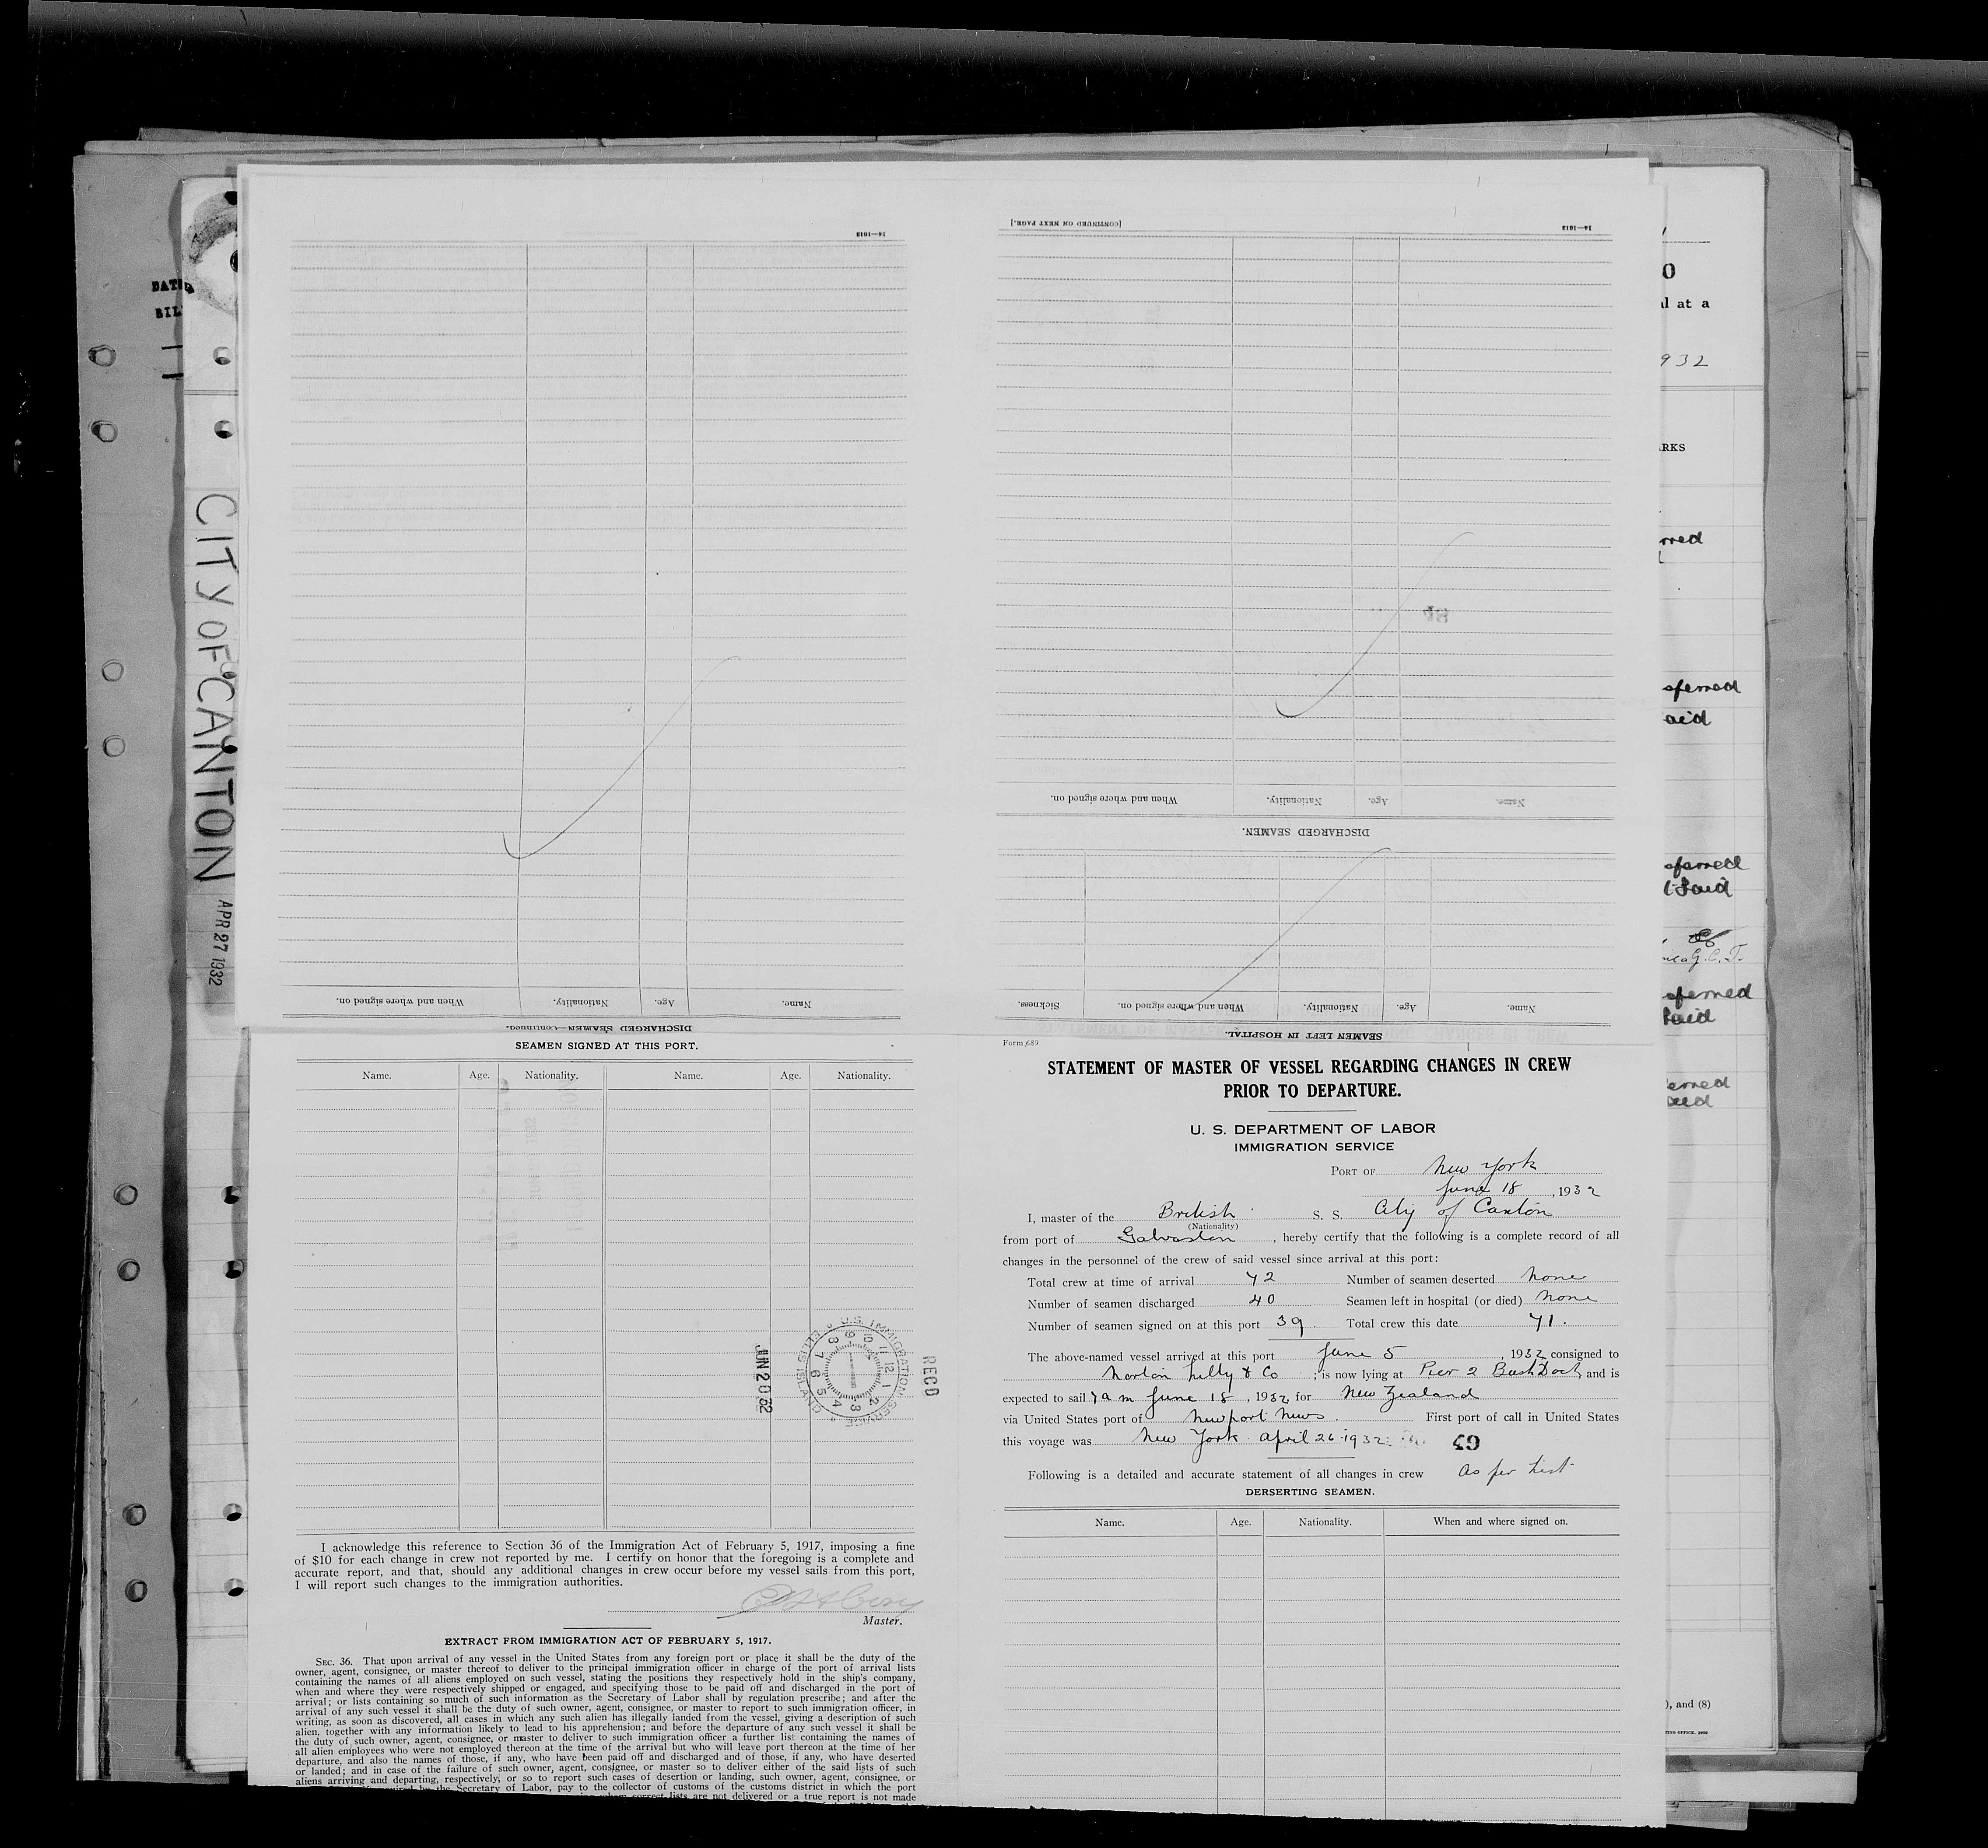 14—1613
[CONTINUED ON NEXT PAGE.]
14—1613
When and where signed on.
Nationality.
Age.
Name.
DISCHARGED SEAMEN.
Sickness.
When and where signed on.
Nationality.
Age.
Name.
SEAMEN LEFT IN HOSPITAL.
When and where signed on.
Nationality.
Age.
Name.
DISCHARGED SEAMEN—Continued.
CITY OF CANTON
APR 27 1932
SEAMEN SIGNED AT THIS PORT.
Name. Age. Nationality. Name. Age. Nationality.
U.S. IMMIGRATION SERVICE
ELLIS ISLAND
RECD
I acknowledge this reference to Section 36 of the Immigration Act of February 5, 1917, imposing a fine
of $10 for each change in crew not reported by me. I certify on honor that the foregoing is a complete and
accurate report, and that, should any additional changes in crew occur before my vessel sails from this port,
I will report such changes to the immigration authorities.
Master.
EXTRACT FROM IMMIGRATION ACT OF FEBRUARY 5, 1917.
SEC. 36. That upon arrival of any vessel in the United States from any foreign port or place it shall be the duty of the
owner, agent, consignee, or master thereof to deliver to the principal immigration officer in charge of the port of arrival lists
containing the names of all aliens employed on such vessel, stating the positions they respectively hold in the ship's company,
when and where they were respectively shipped or engaged, and specifying those to be paid off and discharged in the port of
arrival; or lists containing so much of such information as the Secretary of Labor shall by regulation prescribe; and after the
arrival of any such vessel it shall be the duty of such owner, agent, consignee, or master to report to such immigration officer, in
writing, as soon as discovered, all cases in which any such alien has illegally landed from the vessel, giving a description of such
alien, together with any information likely to lead to his apprehension; and before the departure of any such vessel it shall be
the duty of such owner, agent, consignee, or master to deliver to such immigration officer a further list containing the names of
all alien employees who were not employed thereon at the time of the arrival but who will leave port thereon at the time of her
departure, and also the names of those, if any, who have been paid off and discharged and of those, if any, who have deserted
or landed; and in case of the failure of such owner, agent, consignee, or master so to deliver either of the said lists of such
aliens arriving and departing, respectively, or so to report such cases of desertion or landing, such owner, agent, consignee, or
by the Secretary of Labor, pay to the collector of customs of the customs district in which the port
correct lists are not delivered or a true report is not made
Form 689
STATEMENT OF MASTER OF VESSEL REGARDING CHANGES IN CREW
PRIOR TO DEPARTURE.
U. S. DEPARTMENT OF LABOR
IMMIGRATION SERVICE
PORT OF New York
June 18, 1932
I, master of the British S. S. City of Canton
(Nationality)
from port of Galveston, hereby certify that the following is a complete record of all
changes in the personnel of the crew of said vessel since arrival at this port:
Total crew at time of arrival 72 Number of seamen deserted None
Number of seamen discharged 40 Seamen left in hospital (or died) None
Number of seamen signed on at this port 39 Total crew this date 71.
The above-named vessel arrived at this port June 5, 1932 consigned to
Norton Lilly & Co; is now lying at Pier 2 Bush Dock, and is
expected to sail 7 a m June 18, 1932 for New Zealand
via United States port of Newport News. First port of call in United States
this voyage was New York April 26 · 1932 49
Following is a detailed and accurate statement of all changes in crew As per List
DERSERTING SEAMEN.
Name. Age. Nationality. When and where signed on.
al at a
932
), and (8)